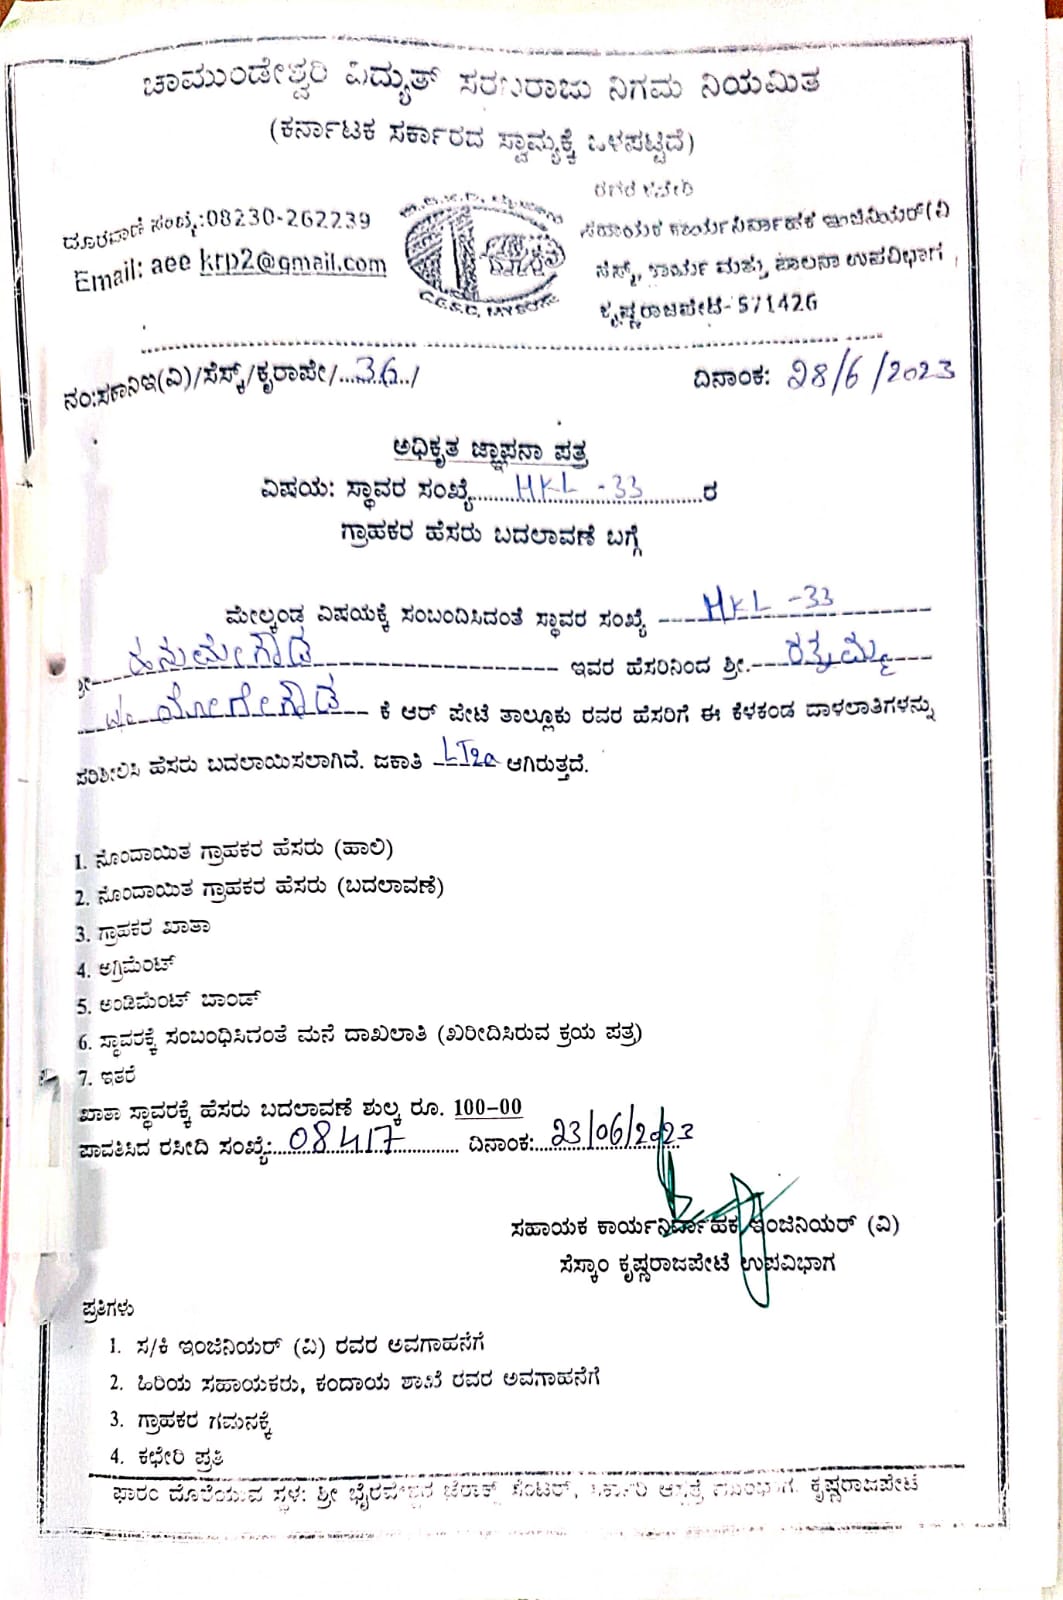 ಚಾಮುಂಡೇಶ್ವರಿ ವಿದ್ಯುತ್ ಸರಬರಾಜು ನಿಗಮ ನಿಯಮಿತ
(ಕರ್ನಾಟಕ ಸರ್ಕಾರದ ಸ್ವಾಮ್ಯಕ್ಕೆ ಒಳಪಟ್ಟಿದೆ)
ದೂರವಾಣಿ ಸಂಖ್ಯೆ:08230-262239
Email: aee krp2@gmail.com
C.E.S.C, MYSORE
ಸಹಾಯಕ ಕಾರ್ಯನಿರ್ವಾಹಕ ಇಂಜಿನಿಯರ್(ವಿ
ಸೆಸ್ಕ್, ಕಾರ್ಯ ಮತ್ತು ಪಾಲನಾ ಉಪವಿಭಾಗ,
ಕೃಷ್ಣರಾಜಪೇಟೆ-571426
ನಂ:ಸಕಾನಿಇ(ವಿ)/ಸೆಸ್ಕ್/ಕೃರಾಪೇ/...36../ ದಿನಾಂಕ: 28/6/2023
ಅಧಿಕೃತ ಜ್ಞಾಪನಾ ಪತ್ರ
ವಿಷಯ: ಸ್ಥಾವರ ಸಂಖ್ಯೆ.......HKL-33.........ರ
ಗ್ರಾಹಕರ ಹೆಸರು ಬದಲಾವಣೆ ಬಗ್ಗೆ
ಮೇಲ್ಕಂಡ ವಿಷಯಕ್ಕೆ ಸಂಬಂದಿಸಿದಂತೆ ಸ್ಥಾವರ ಸಂಖ್ಯೆ ---- HKL-33 ------
ಶ್ರೀ---ಹನುಮೇಗೌಡ---------------- ಇವರ ಹೆಸರಿನಿಂದ ಶ್ರೀ.---ರತ್ನಮ್ಮ---
ಯೋಗೇಗೌಡ-- ಕೆ ಆರ್ ಪೇಟೆ ತಾಲ್ಲೂಕು ರವರ ಹೆಸರಿಗೆ ಈ ಕೆಳಕಂಡ ದಾಳಲಾತಿಗಳನ್ನು
ಪರಿಶೀಲಿಸಿ ಹೆಸರು ಬದಲಾಯಿಸಲಾಗಿದೆ. ಜಕಾತಿ -LT2a ಆಗಿರುತ್ತದೆ.
1. ನೊಂದಾಯಿತ ಗ್ರಾಹಕರ ಹೆಸರು (ಹಾಲಿ)
2. ನೊಂದಾಯಿತ ಗ್ರಾಹಕರ ಹೆಸರು (ಬದಲಾವಣೆ)
3. ಗ್ರಾಹಕರ ಖಾತಾ
4. ಅಗ್ರಿಮೆಂಟ್
5. ಅಂಡಿಮೆಂಟ್ ಬಾಂಡ್
6. ಸ್ಥಾವರಕ್ಕೆ ಸಂಬಂಧಿಸಿದಂತೆ ಮನೆ ದಾಖಲಾತಿ (ಖರೀದಿಸಿರುವ ಕ್ರಯ ಪತ್ರ)
7. ಇತರೆ
ಖಾತಾ ಸ್ಥಾವರಕ್ಕೆ ಹೆಸರು ಬದಲಾವಣೆ ಶುಲ್ಕ ರೂ. 100-00
ಪಾವತಿಸಿದ ರಸೀದಿ ಸಂಖ್ಯೆ:...08417........... ದಿನಾಂಕ:...23/06/2023
ಸಹಾಯಕ ಕಾರ್ಯನಿರ್ವಾಹಕ ಇಂಜಿನಿಯರ್ (ವಿ)
ಸೆಸ್ಕಾಂ ಕೃಷ್ಣರಾಜಪೇಟೆ ಉಪವಿಭಾಗ
ಪ್ರತಿಗಳು
1. ಸ/ಕಿ ಇಂಜಿನಿಯರ್ (ವಿ) ರವರ ಅವಗಾಹನೆಗೆ
2. ಹಿರಿಯ ಸಹಾಯಕರು, ಕಂದಾಯ ಶಾಖೆ ರವರ ಅವಗಾಹನೆಗೆ
3. ಗ್ರಾಹಕರ ಗಮನಕ್ಕೆ
4. ಕಛೇರಿ ಪ್ರತಿ
ಫಾರಂ ದೊರೆಯುವ ಸ್ಥಳ: ಶ್ರೀ ಭೈರವೇಶ್ವರ ಜೆರಾಕ್ಸ್ ಸೆಂಟರ್, ಸರ್ಕಾರಿ ಆಸ್ಪತ್ರೆ ಕೃಷ್ಣರಾಜಪೇಟೆ